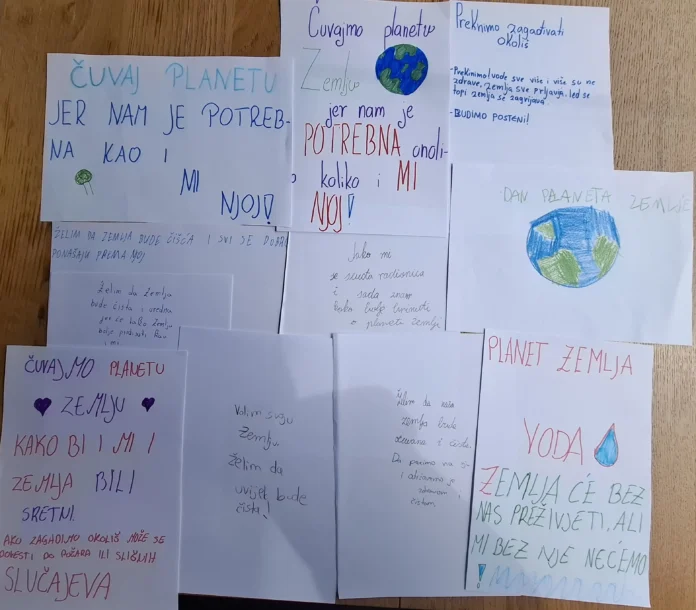 ČUVAJ PLANETU
JER NAM JE POTREB-
NA KAO I
MI
NJOJ!
Čuvajmo planetu
Zemlju
jer nam je
POTREBNA onoli-
koliko i MI
NJOJ!
Preknimo zagađivati
okoliš
-Prekinimo! vode sve više i više su ne
zdrave, Zemlja sve prljavija, led se
topi zemlja se zagrijava
-BUDIMO POSTENI!
DAN PLANETA ZEMLJE
ŽELIM DA ZEMLJA BUDE ČIŠĆA I SVI SE DOBRO
PONAŠAJU PREMA NJOJ
Želim da Zemlja
bude čista i uredna
jer će bolje Zemlja
i mi
Jako mi
se sviđa radionica
i sada znam
kako bolje brinuti
o planeti zemlji
ČUVAJMO PLANETU
ZEMLJU
KAKO BI I MI I
ZEMLJA BILI
SRETNI.
AKO ZAGADIMO OKOLIŠ MOŽE SE
DOVESTI DO POŽARA ILI SLIČNIH
SLUČAJEVA
Volim svoju
Zemlju,
Želim da
uvijek bude
čista!
Želim da naša
zemlja bude
očuvana i čista.
Da pazimo na
PLANET ZEMLJA
VODA
ZEMLJA ĆE BEZ
NAS PREŽIVJETI, ALI
MI BEZ NJE NEĆEMO
!